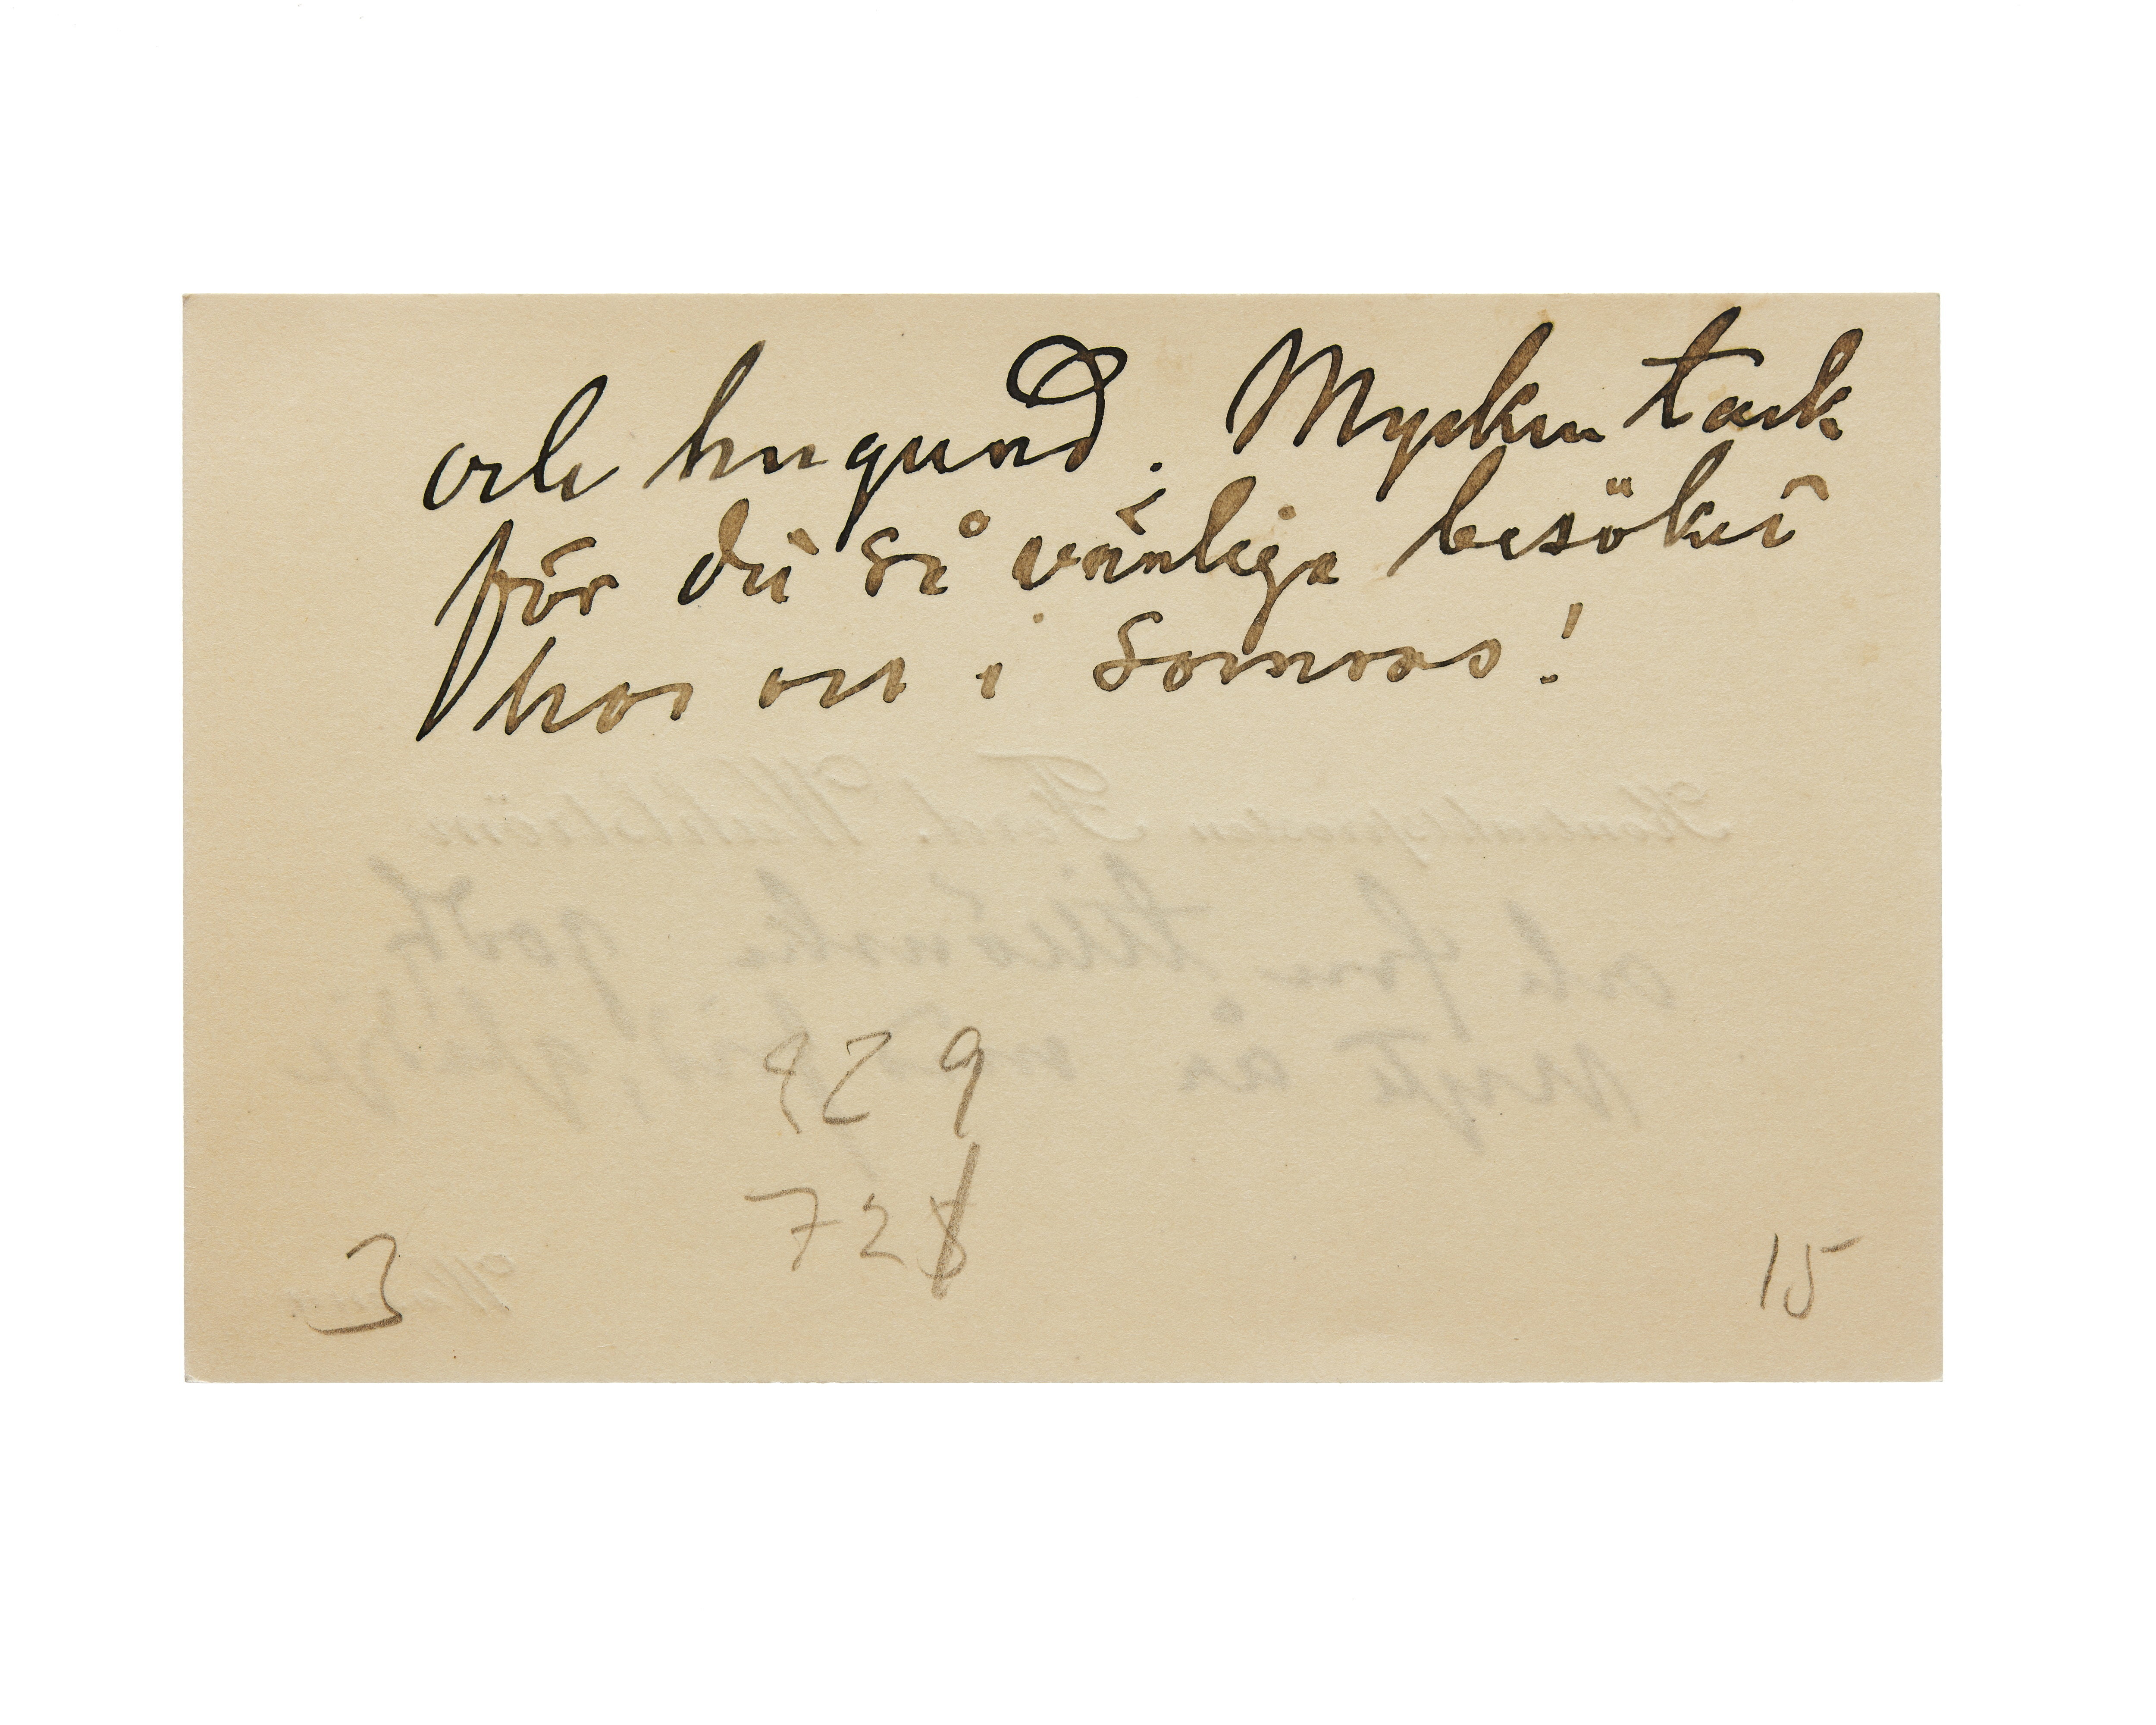 och hugund. Mycken tack
för det så vänliga besöket
hos oss i somras!
929
728
3
15